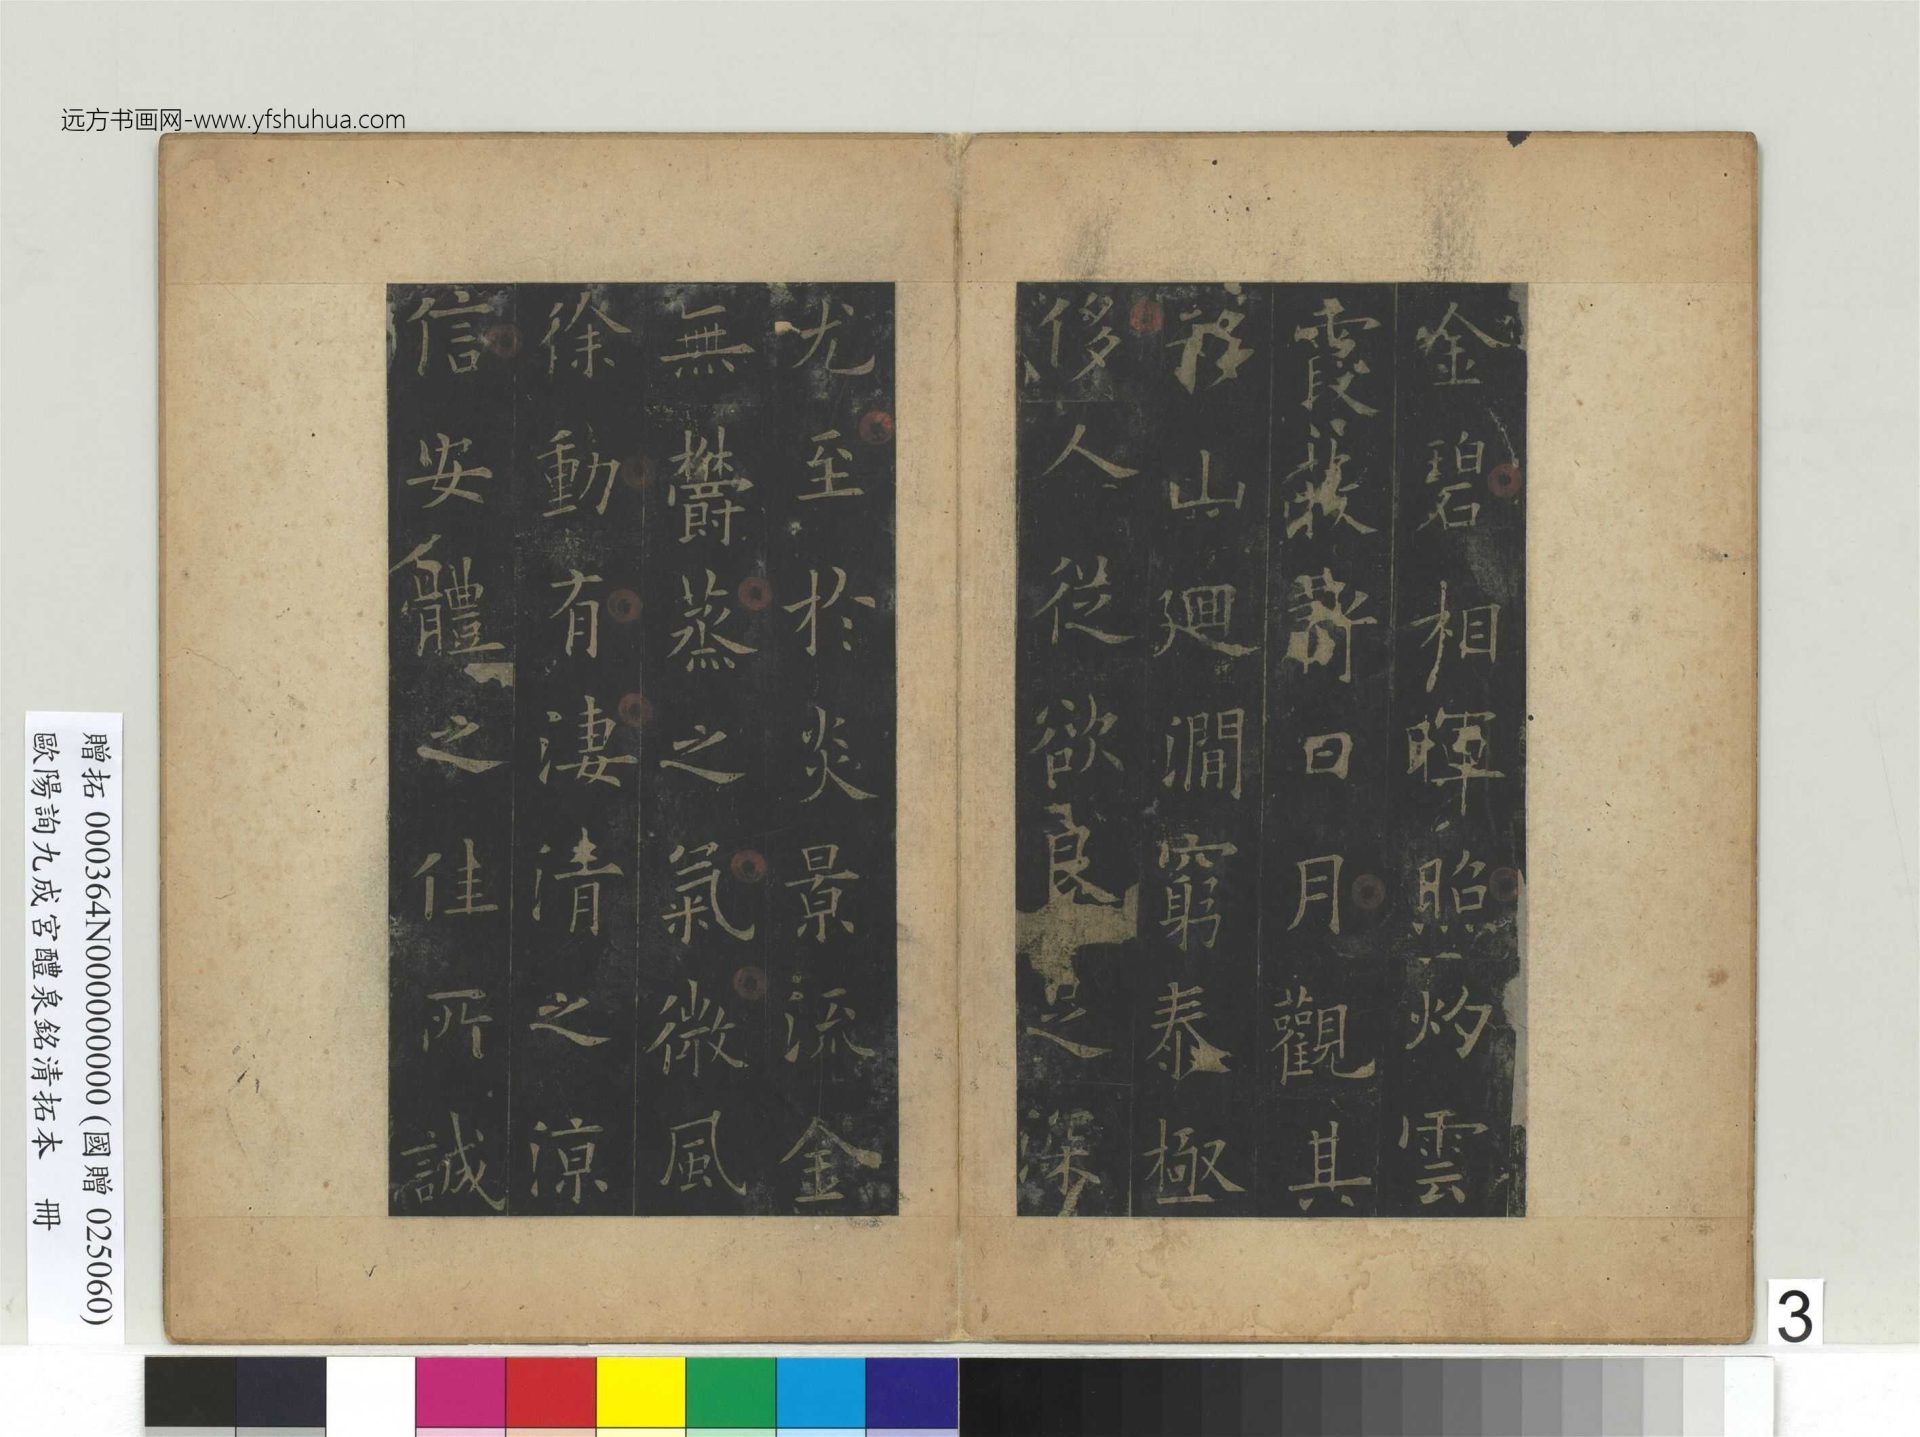 远方书画网-www.yfshuhua.com
金碧相暉照灼雲
霞蔽虧日月觀其
移山廻澗窮泰極
侈人從欲良足深
尤至於炎景流金
無欝蒸之氣微風
徐動有淒清之凉
信安體之佳所誠
贈拓 000364N000000000 (國贈 025060)
歐陽詢九成宮醴泉銘清拓本 冊
3